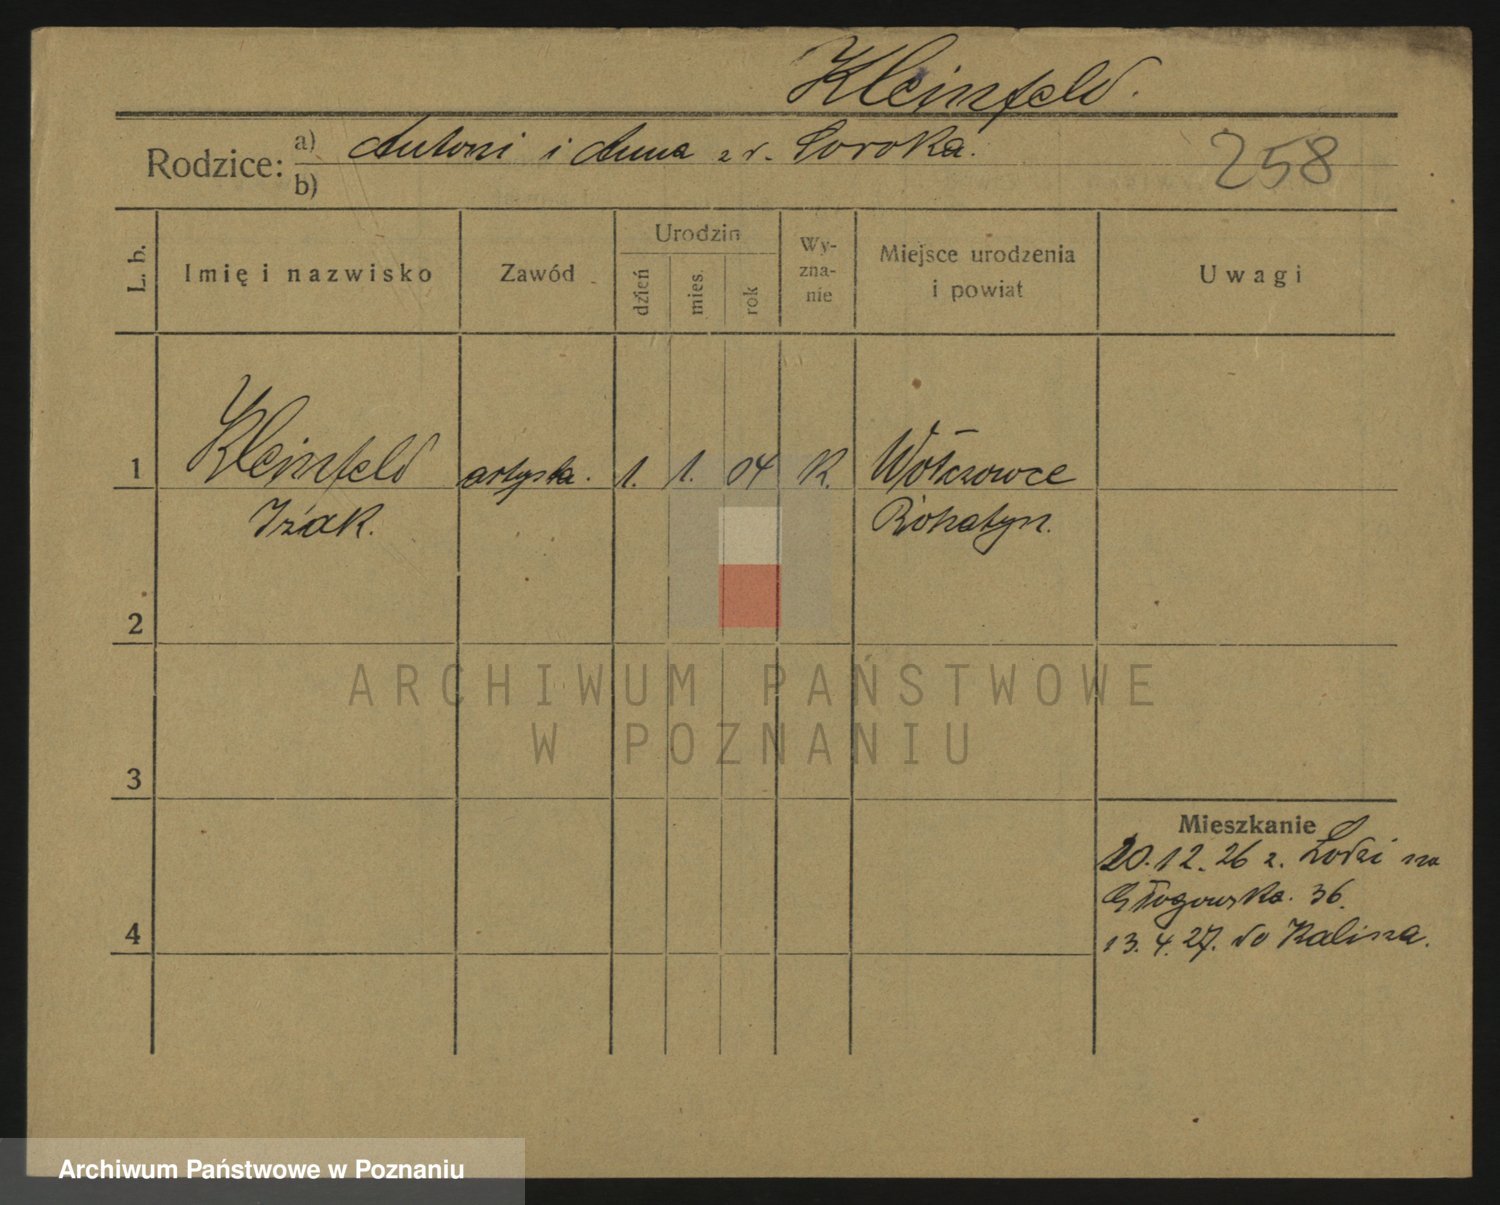 Kleinfeld.
Rodzice: a) Antoni i Anna z d. Soroka.
b)
258
L. b. Imię i nazwisko Zawód Urodzin dzień mies. rok Wyznanie Miejsce urodzenia i powiat Uwagi
1 Kleinfeld artysta. 1. 1. 04 K. Wołczowce
Iżak. Rohatyn.
2
ARCHIWUM PAŃSTWOWE
W POZNANIU
3
Mieszkanie
20.12.26 z. Łodzi na
Głogowska. 36.
4
13.4.27. do Kalisza.
Archiwum Państwowe w Poznaniu